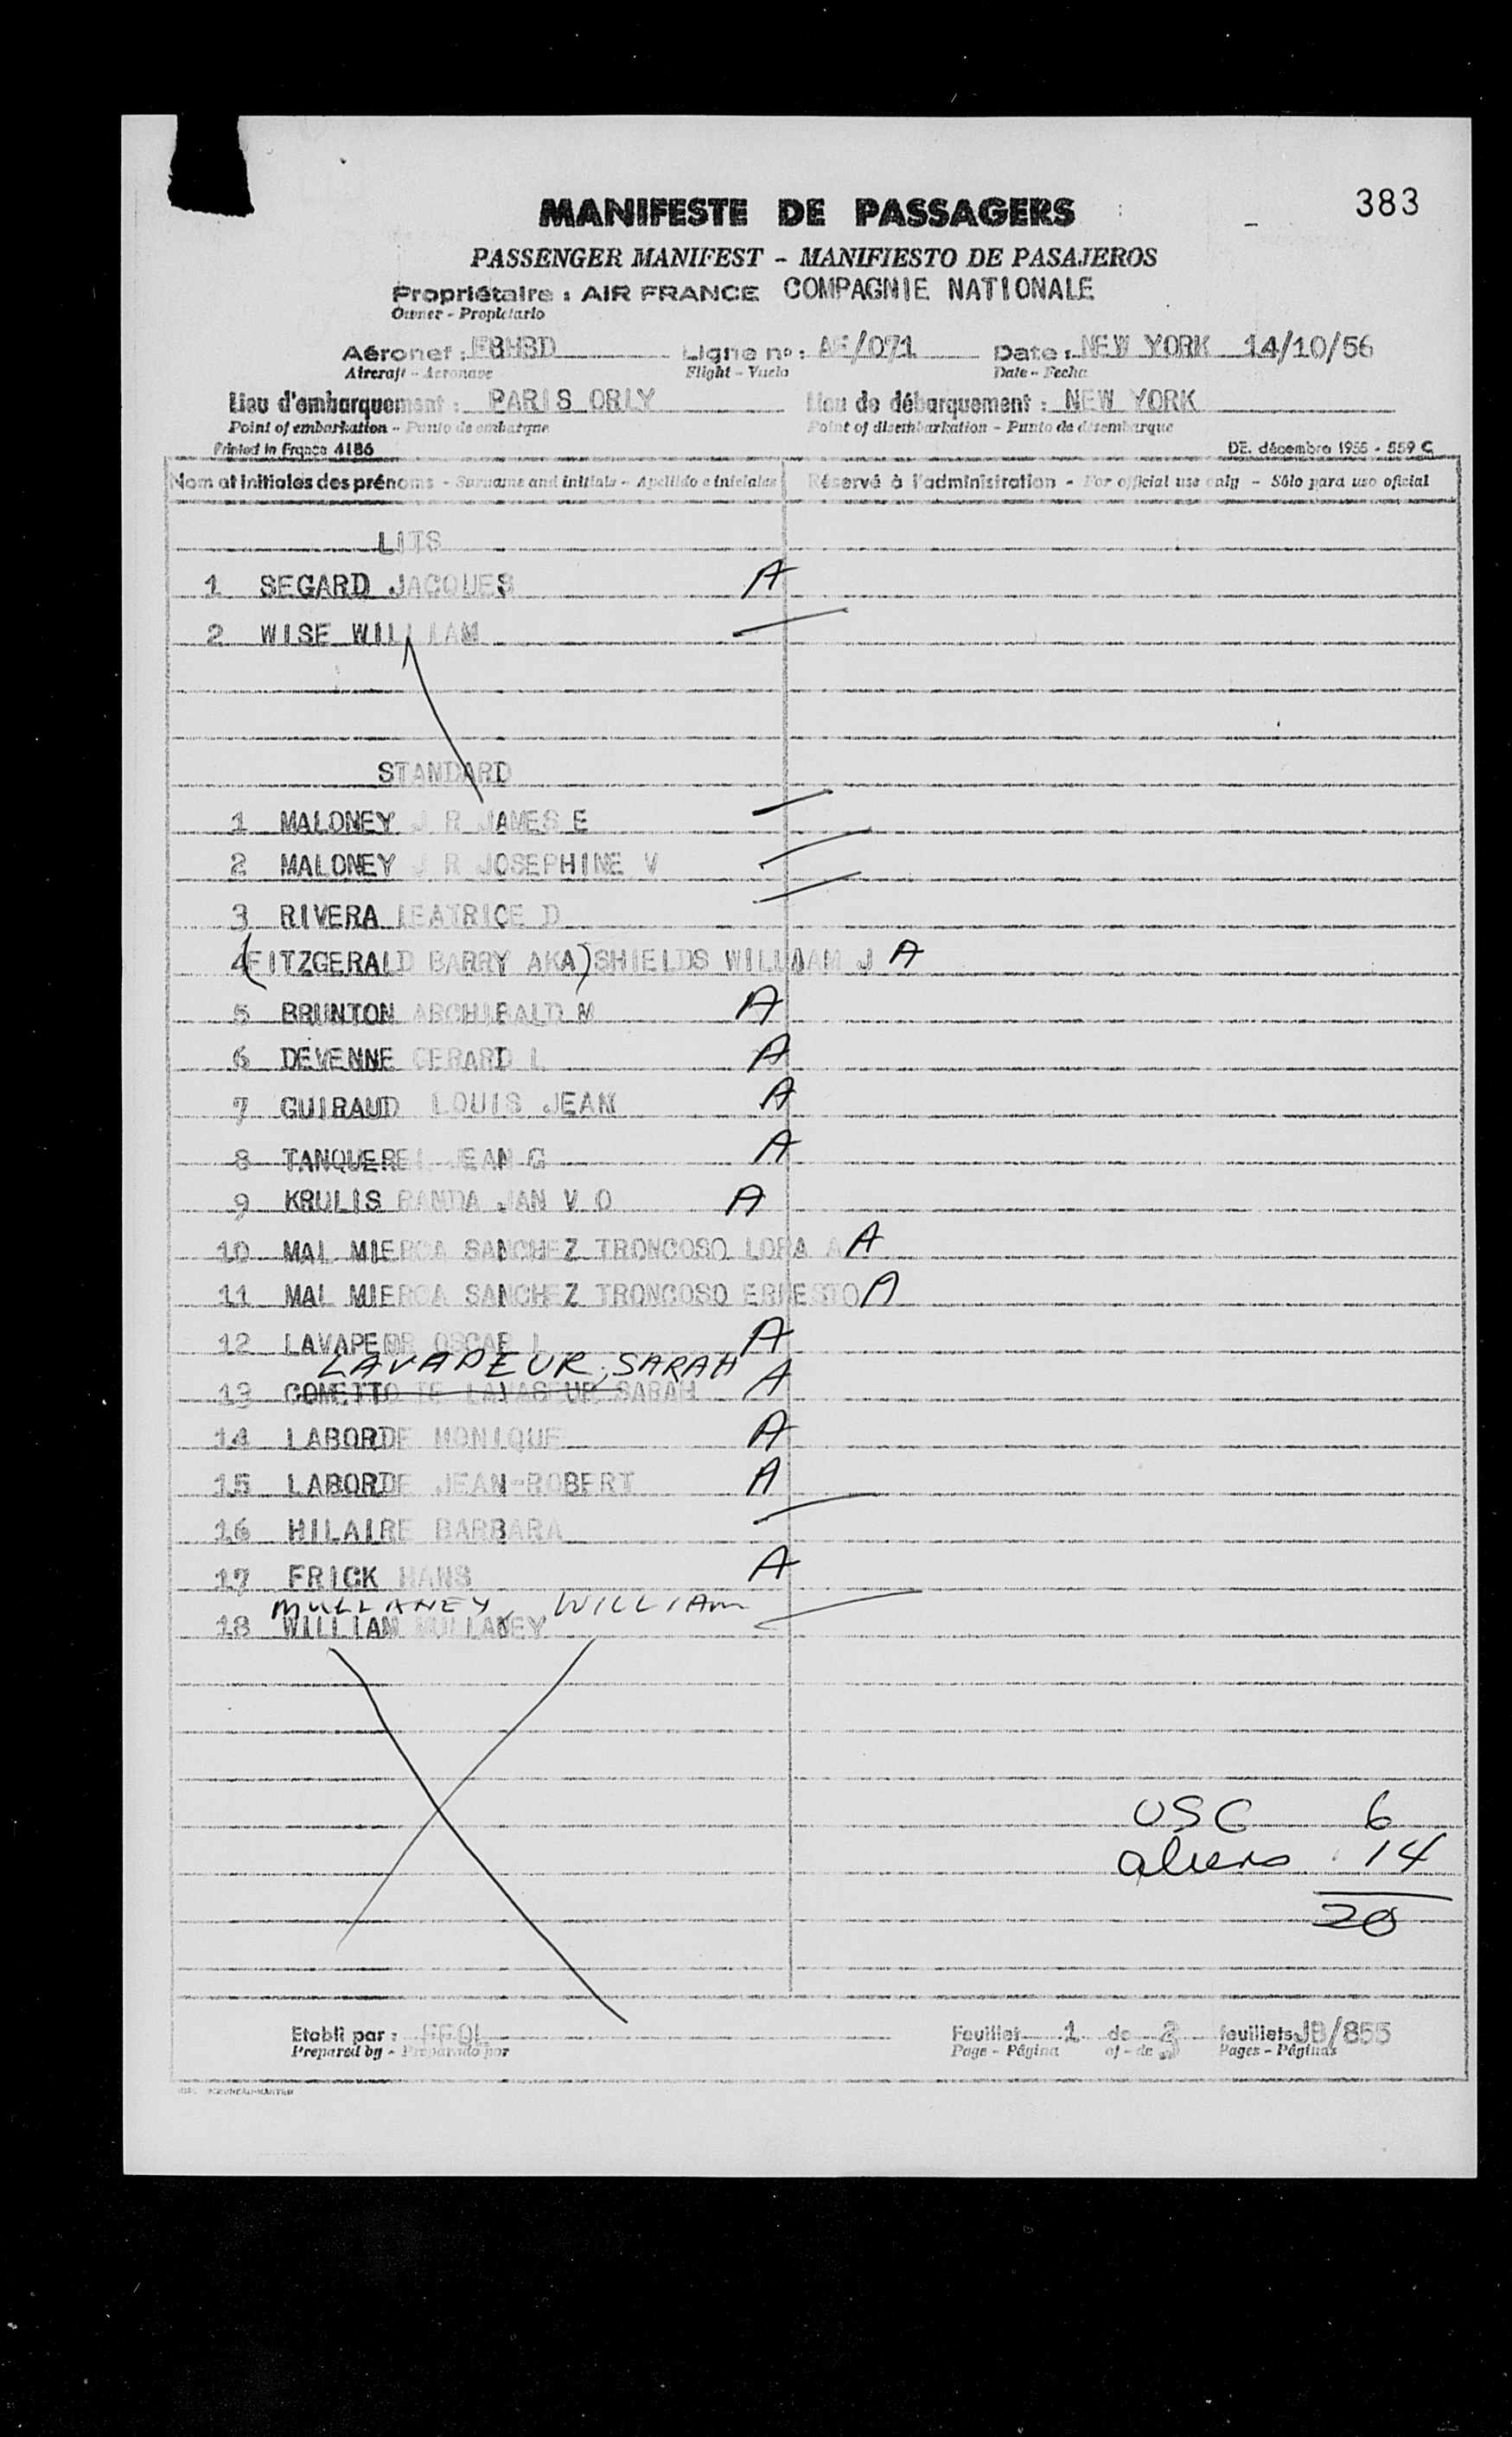 383
MANIFESTE DE PASSAGERS
PASSENGER MANIFEST - MANIFIESTO DE PASAJEROS
Propriétaire : AIR FRANCE COMPAGNIE NATIONALE
Owner - Propietario
Aéronef : FBHBD Ligne nº : AF/071 Date : NEW YORK 14/10/56
Aircraft - Aeronave Flight - Vuelo Date - Fecha
Lieu d'embarquement : PARIS ORLY Lieu de débarquement : NEW YORK
Point of embarkation - Punto de embarque Point of disembarkation - Punto de desembarque
Printed in France 4186 DE. décembre 1955 - 559 C
Nom et initiales des prénoms - Surname and initials - Apellido e iniciales Réservé à l'administration - For official use only - Sólo para uso oficial
LITS
1 SEGARD JACQUES A
2 WISE WILLIAM
STANDARD
1 MALONEY J R JAMES E
2 MALONEY J R JOSEPHINE V
3 RIVERA LEATRICE D
4 (FITZGERALD BARRY AKA) SHIELDS WILLIAM J A
5 BRUNTON ARCHIBALD M A
6 DEVENNE GERARD L A
7 GUIRAUD LOUIS JEAN A
8 TANQUEREL JEAN G A
9 KRULIS RANDA JAN V O A
10 MAL MIERCA SANCHEZ TRONCOSO LORA A A
11 MAL MIERCA SANCHEZ TRONCOSO ERNESTO A
12 LAVAPEUR OSCAR L A
LAVAPEUR, SARAH
13 COMETTO DE LAVASEUR SARAH A
14 LABORDE MONIQUE A
15 LABORDE JEAN-ROBERT A
16 HILAIRE BARBARA
17 FRICK HANS A
MULLANEY, WILLIAM
18 WILLIAM MULLANEY
USC 6
aliens 14
20
Etabli par : FFOL Feuillet 1 de 3 feuillets JB/855
Prepared by - Preparado por Page - Página of - de Pages - Páginas